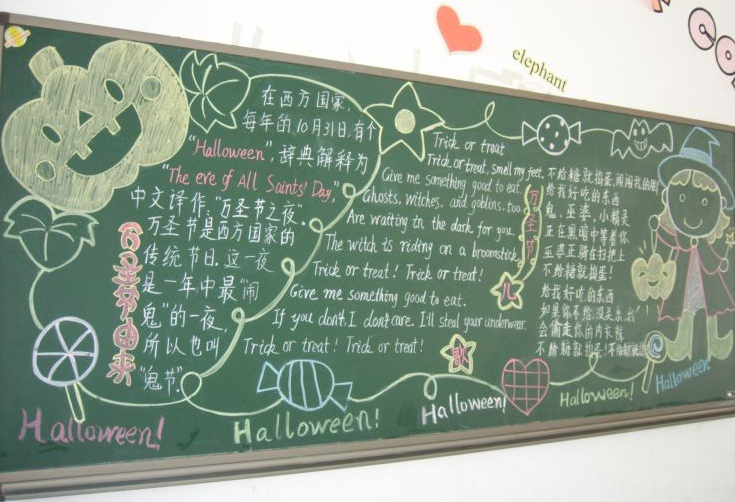 elephant
CO
在西方国家,
每年的10月31日,有个
"Halloween",辞典解释为
"The eve of All Saints' Day,"
中文译作:"万圣节之夜".
万圣节是西方国家的
传统节日.这一夜
是一年中最"闹
鬼"的一夜,
所以也叫
"鬼节".
万圣节由来
Trick or treat
Trick or treat, smell my feet.
Give me something good to eat.
Ghosts, witches, and goblins, too.
Are waiting in the dark for you.
The witch is riding on a broomstick
Trick or treat! Trick or treat!
Give me something good to eat.
If you don't, I don't care. I'll steal your underwear.
Trick or treat! Trick or treat!
万圣节
儿
歌
不给糖就捣蛋,闻闻我的脚
给我好吃的东西
鬼,巫婆,小精灵
正在黑暗中等着你
巫婆正骑在扫把上
不给糖就捣蛋!
给我好吃的东西
如果你不给,没关系,我
会偷走你的内衣裤
不给糖就捣蛋!不给糖就
Halloween!
Halloween!
Halloween!
Halloween!
Halloween